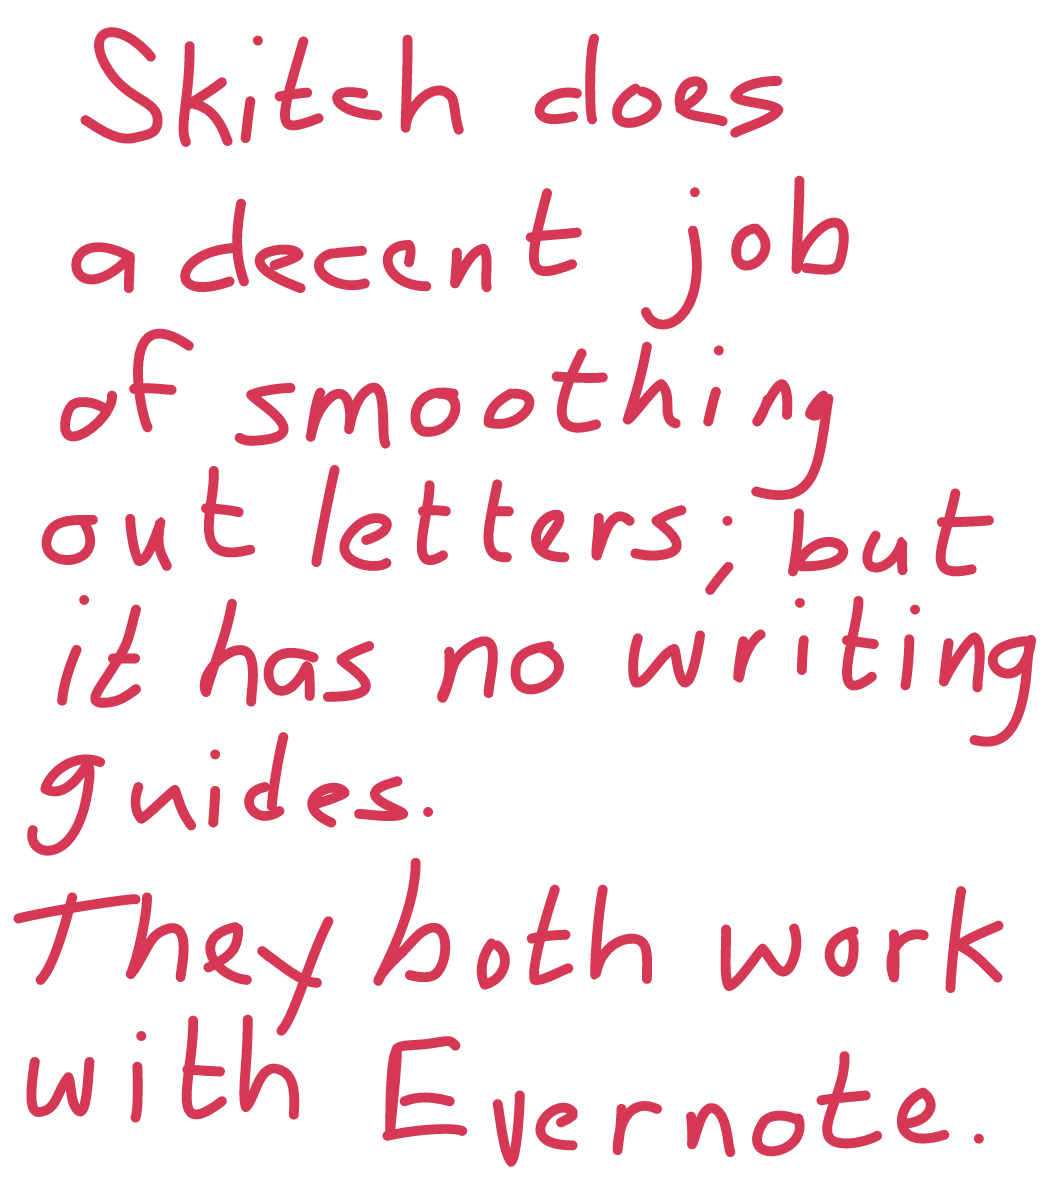 Skitch does
a decent job
of smoothing
out letters; but
it has no writing
guides.
They both work
with Evernote.